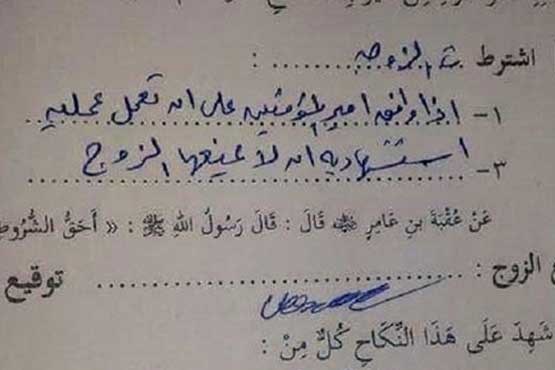 اشترطت الزوجه :
١- اذا وافق امير المؤمنين على ان تعمل عمليه
٣- استشهاديه ان لا يمنعها الزوج
عَنْ عُقْبَةَ بنِ عَامِرٍ ﷺ قَالَ : قَالَ رَسُولُ اللهِ ﷺ : « أَحَقُّ الشُّرُوطِ
ع الزوج : توقيع
شَهِدَ عَلَى هَذَا النِّكَاحِ كُلٌّ مِنْ :